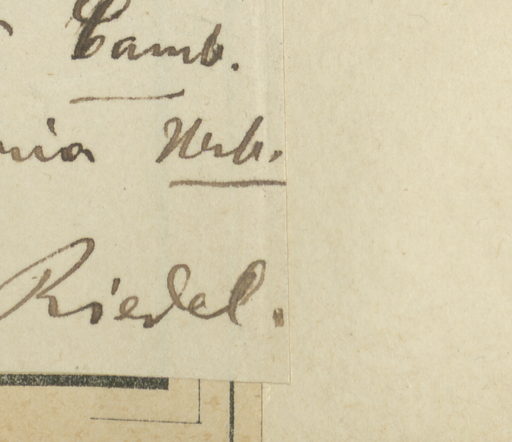 Camb.
nia Urb.
Riedel.